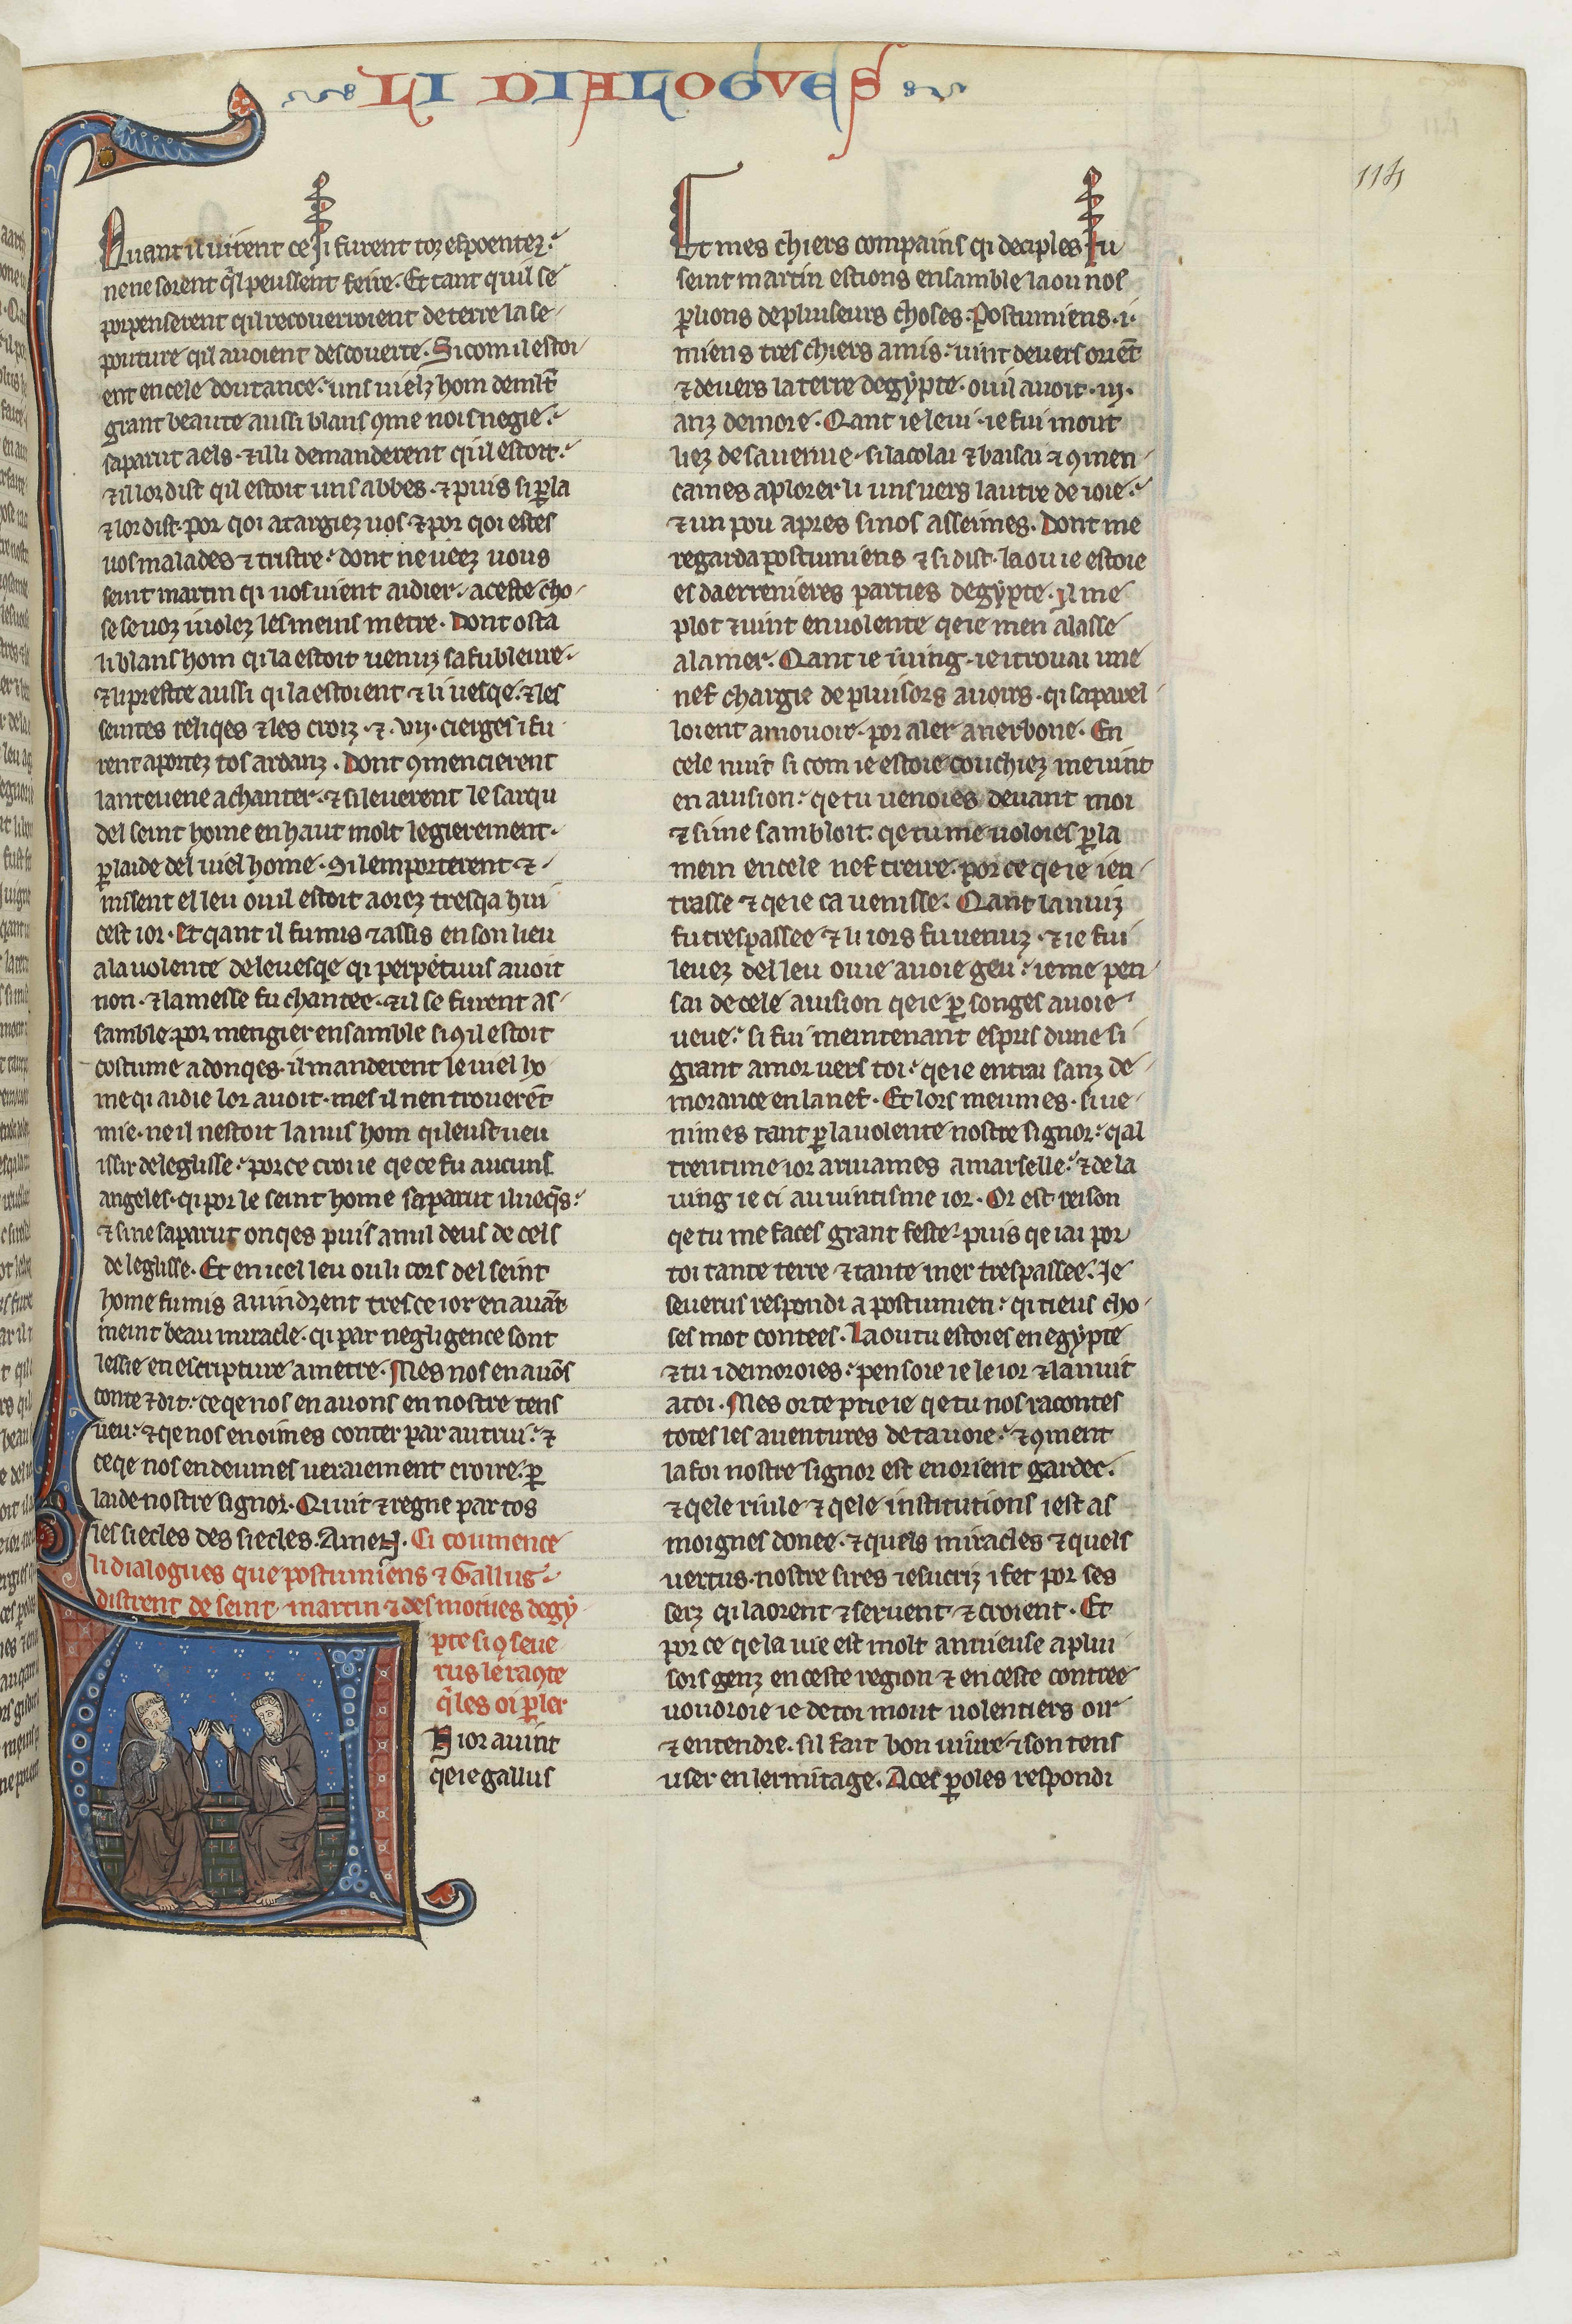 LI DIALOGVES
114
Quant il uirent ce si furent toz espoentez.
ne ne sorent q̃l peussent feire. Et tant quil se
porpenserent qil recouerroient de terre la se
pouture qil auoient descouerte. Si com il estoi
ent en cele doutance. uns uielz hom de mlt̃
grant beaute aussi blans 9me nois negie.
saparut a els. ⁊ il li demanderent qil estoit.
⁊ il lor dist qil estoit uns abbes. ⁊ puis si ꝑla
⁊ lor dist. por qoi atargiez uos. ⁊ por qoi estes
uos malades ⁊ tristre. dont ne ueez uous
seint martin qi uos uient aidier. a ceste cho
se se uoz i uolez les meins metre. Dont osta
li blans hom qi la estoit uenuz safubleure.
⁊ li prestre aussi qi la estoient ⁊ li uesqe. ⁊ les
seintes reliqes ⁊ les croiz. ⁊ .vij. cierges i fu
rent aportez tos ardanz. Dont 9mencierent
lanteuene a chanter. ⁊ si leuerent le sarqu
del seint home en haut molt legierement.
ꝑ laide del uiel home. Si lemporterent ⁊
missent el leu ou il estoit aorez tresqa hui
cest ior. Et qant il fu mis ⁊ assis en son lieu
a la uolente de leuesqe qi perpetuus auoit
non. ⁊ la messe fu chantee. ⁊ il se furent as
samble por mengier ensamble si 9 il estoit
costume adonqes. il manderent le uiel ho
me qi aidie lor auoit. mes il nen trouerẽt
mie. ne il nestoit la nus hom qi leust ueu
issir de leglisse. por ce croi ie qe ce fu aucuns
angeles. qi por le seint home saparut ilueq̃s.
⁊ si ne saparut onqes puis a nul deus de cels
de leglisse. Et en icel leu ou li cors del seint
home fu mis auindrent tres ce ior en auãt
meint beau miracle. qi par negligence sont
lessie en escripture a metre. Mes nos en auõs
conte ⁊ dit. ce qe nos en auons en nostre tens
ueu. ⁊ qe nos en oimes conter par autrui. ⁊
ce qe nos en deumes ueraiement croire. ꝑ
laide nostre signor. Q uiut ⁊ regne par tos
les siecles des siecles. Amen. Ci coumence
li dialogues que postumiens ⁊ Gallus
distrent de seint martin ⁊ des moines degy
pte si 9 seue
rus le ra9te
q̃ les oi ꝑler
N ior auint
qe ie gallus
Et mes chiers compains qi deciples fu
seint martin estions ensamble la ou nos
ꝑlions de pluiseurs choses. Postumiens .i.
miens tres chiers amis. uint deuers oriẽt
⁊ deuers la terre degypte. ou il auoit .iij.
anz demore. Qant ie le ui. ie fui mout
liez de sa uenue. si lacolai ⁊ baisai ⁊ 9men
cames a plorer li uns uers lautre de ioie.
⁊ un pou apres si nos asseimes. Dont me
regarda postumiens ⁊ si dist. la ou ie estoie
es daerrenieres parties degypte. il me
plot ⁊ uint en uolente qe ie men alasse
a la mer. Qant ie i uing. ie i trouai une
nef chargie de pluisors auoirs. qi saparel
loient a mouoir. por aler a nerbone. En
cele nuit si com ie estoie couchiez me uint
en auision. qe tu uenoies deuant moi
⁊ si me sambloit. qe tu me uoloies ꝑ la
mein en cele nef treire. por ce qe ie i en
trasse ⁊ qe ie ca uenisse. Qant la nuiz
fu trespassee ⁊ li iors fu uenuz. ⁊ ie fui
leuez del leu ou ie auoie geu. ie me pen
sai de cele auision qe ie ꝑ songes auoie
ueue. si fui meintenant espris dune si
grant amor uers toi. qe ie entrai sanz de
morance en la nef. Et lors meumes. si ue
nimes tant ꝑ la uolente nostre signor. qal
trentime ior ariuames a marselle. ⁊ de la
uing ie ci au uintisme ior. Or est reison
qe tu me faces grant feste. puis qe iai por
toi tante terre ⁊ tante mer trespassee. Je
seuerus respondi a postumien. qi tieus cho
ses mot contees. La ou tu estoies en egypte
⁊ tu i demoroies. pensoie ie le ior ⁊ la nuit
a toi. Mes or te prie ie qe tu nos racontes
totes les auentures de ta uoie. ⁊ 9ment
la foi nostre signor est en orient gardee.
⁊ qele riule ⁊ qele institutions i est as
moignes donee. ⁊ quels miracles ⁊ quels
uertus. nostre sires iesucriz i fet por ses
serz qi laorent ⁊ seruent ⁊ croient. Et
por ce qe la uie est molt anuieuse a plui
sors genz en ceste region ⁊ en ceste contree
uoudroie ie de toi mout uolentiers oir
⁊ entendre. sil fait bon uiure ⁊ son tens
user en lermitage. A ces ꝑoles respondi